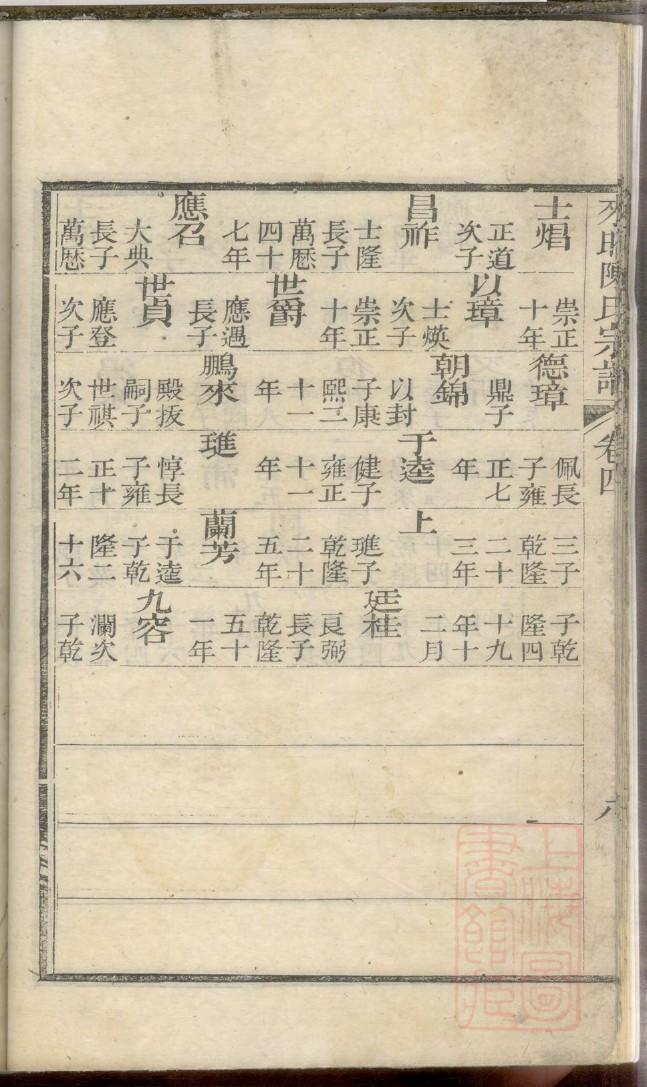 陳氏宗譜
卷四
六
士焻
正道
次子
昌祚
士隆
長子
萬厯
四十
七年
應召
大典
長子
萬厯
崇正
十年
以璋
士煐
次子
崇正
十年
世爵
應遇
長子
世貞
應登
次子
德璋
鼎子
朝錦
以封
子康
熙二
十一
年
鵬來
殿抜
嗣子
世祺
次子
佩長
子雍
正七
年
于逵
健子
雍正
十一
年
璡
惇長
子雍
正十
二年
三子
乾隆
二十
三年
上
璡子
乾隆
二十
五年
蘭芳
于逵
子乾
隆二
十六
子乾
隆四
十九
年十
二月
廷桂
良弼
長子
乾隆
五十
一年
九容
瀾次
子乾
上海圖
書館藏